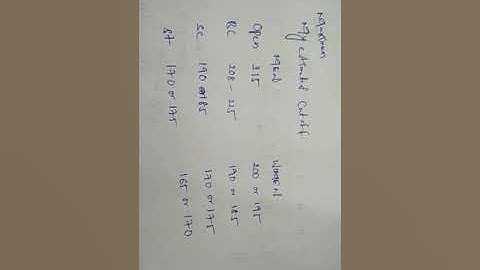 My estimated Cutoff
Men Women
Open 215 200 or 195
BC 208 - 225 190 or 185
SC 190 or 185 170 or 175
ST 170 or 175 165 or 170